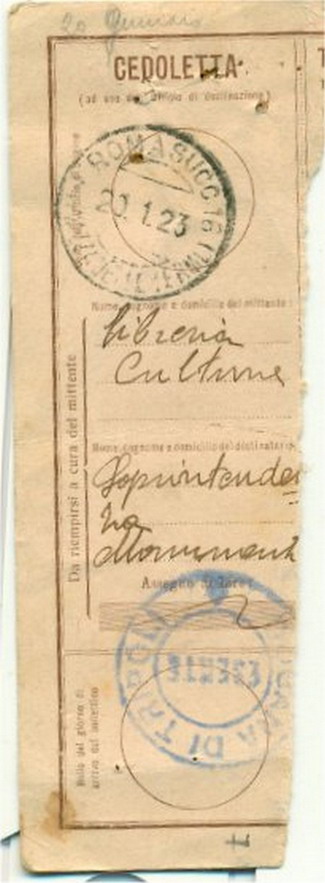 20 Gennaio
CEDOLETTA
(ad uso dell'Ufficio di destinazione)
ROMA SUCC 16
20.1.23
Nome, cognome e domicilio del mittente:
Libreria
Culture
Nome, cognome e domicilio del destinatario
Soprintenden
za
Monument
Assegno di Lire
Da riempirsi a cura del mittente
DI TRIPOLI
ESENTE
Bollo del giorno di
arrivo del bollettino